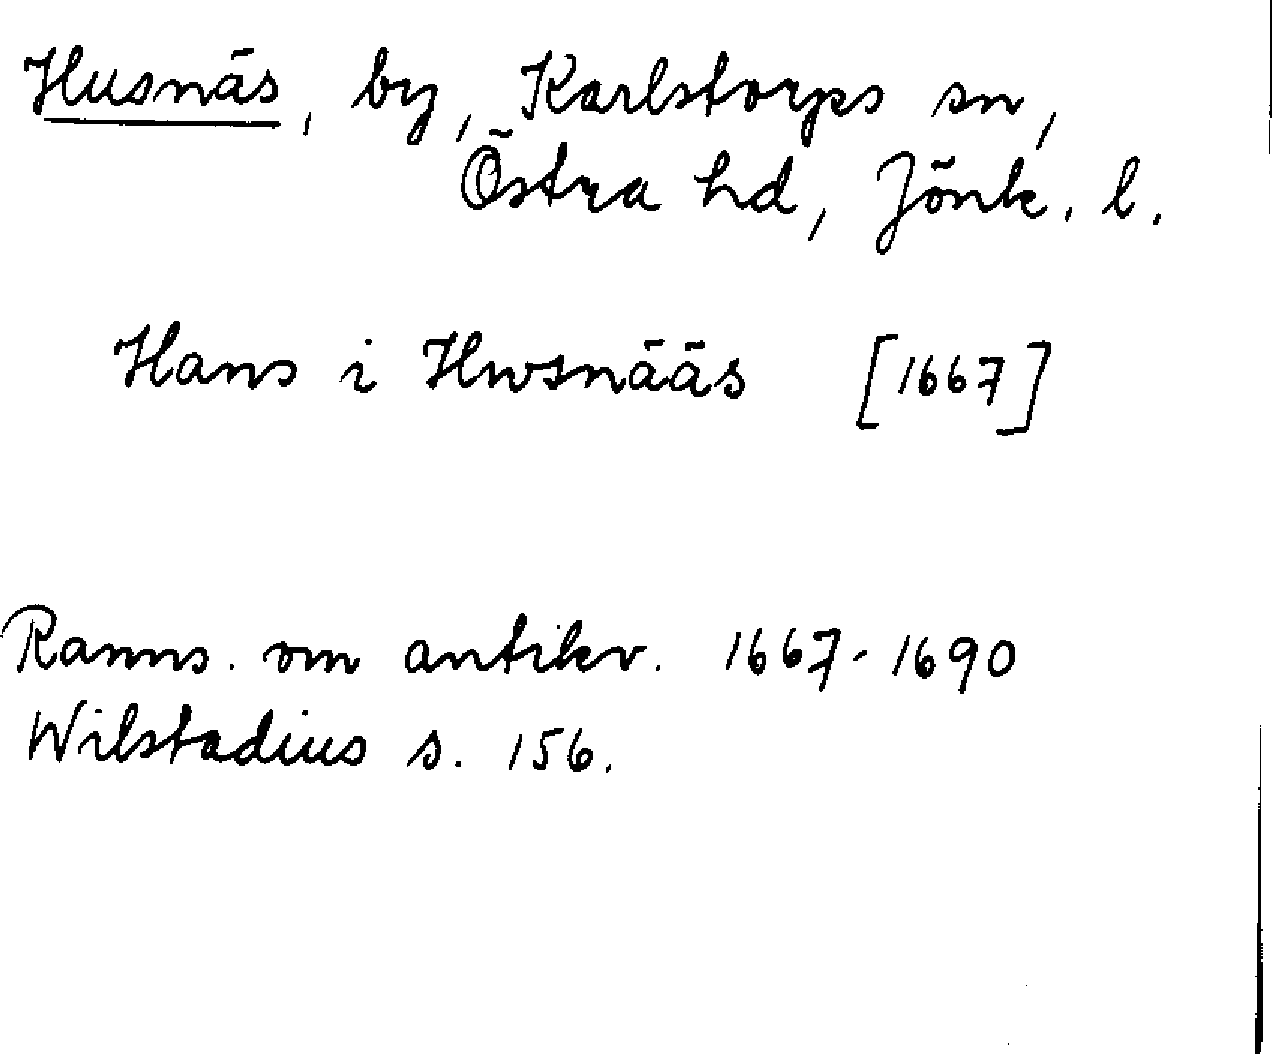 Husnäs, by, Karlstorps sn,
Östra hd, Jönk. l.
Hans i Hwsnääs [1667]
Ranns. om antikv. 1667-1690
Wilstadius s. 156.